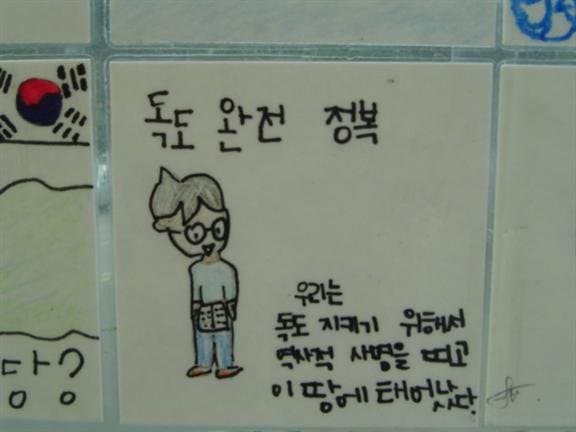 독도 완전 정복
우리는
독도 지키기 위해서
역사적 사명을 띠고
이 땅에 태어났다.
땅?